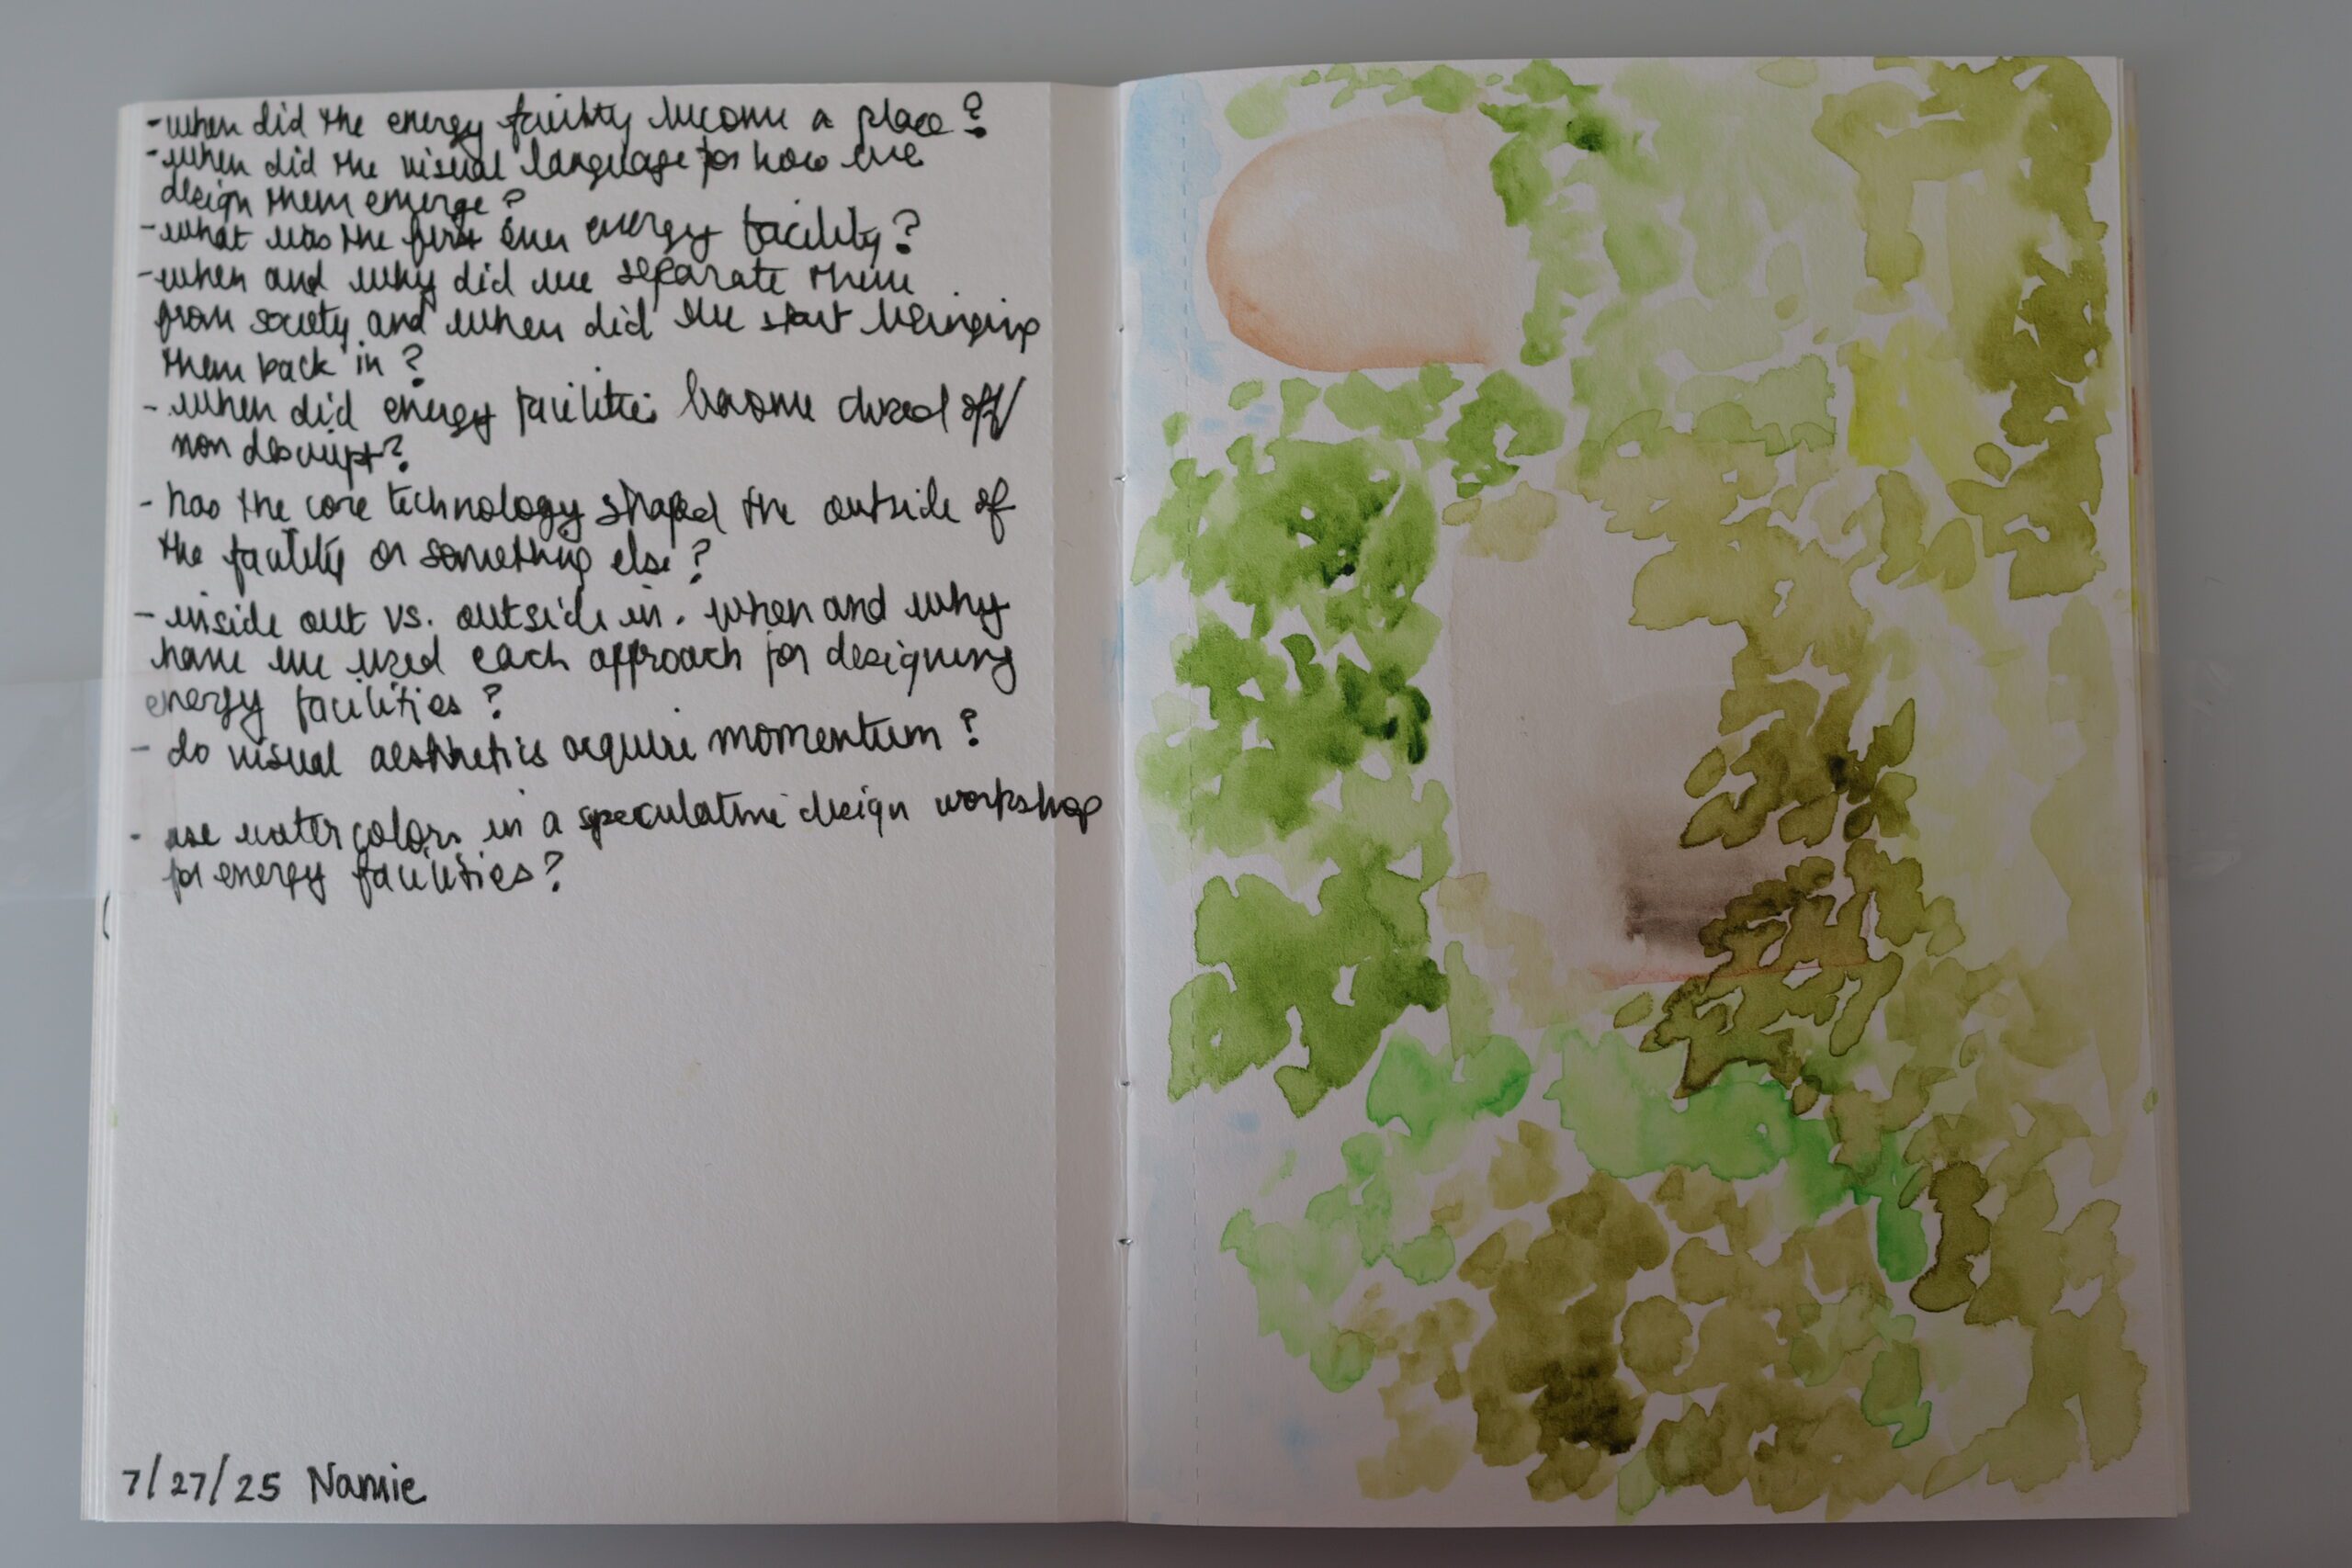 - when did the energy facility become a place?
- when did the visual language for how we
design them emerge?
- what was the first ever energy facility?
- when and why did we separate them
from society and when did we start bringing
them back in?
- when did energy facilities become closed off/
non descript?
- has the core technology shaped the outside of
the facility or something else?
- inside out vs. outside in. when and why
have we used each approach for designing
energy facilities?
- do visual aesthetics acquire momentum?
- use watercolors in a speculative design workshop
for energy facilities?
7/27/25 Namie